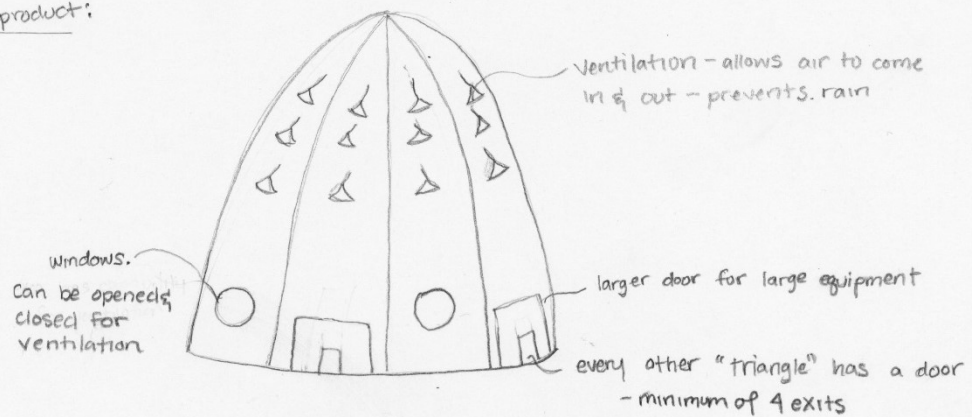 product:
ventilation - allows air to come
in & out - prevents. rain
windows.
can be opened &
closed for
ventilation
larger door for large equipment
every other "triangle" has a door
- minimum of 4 exits